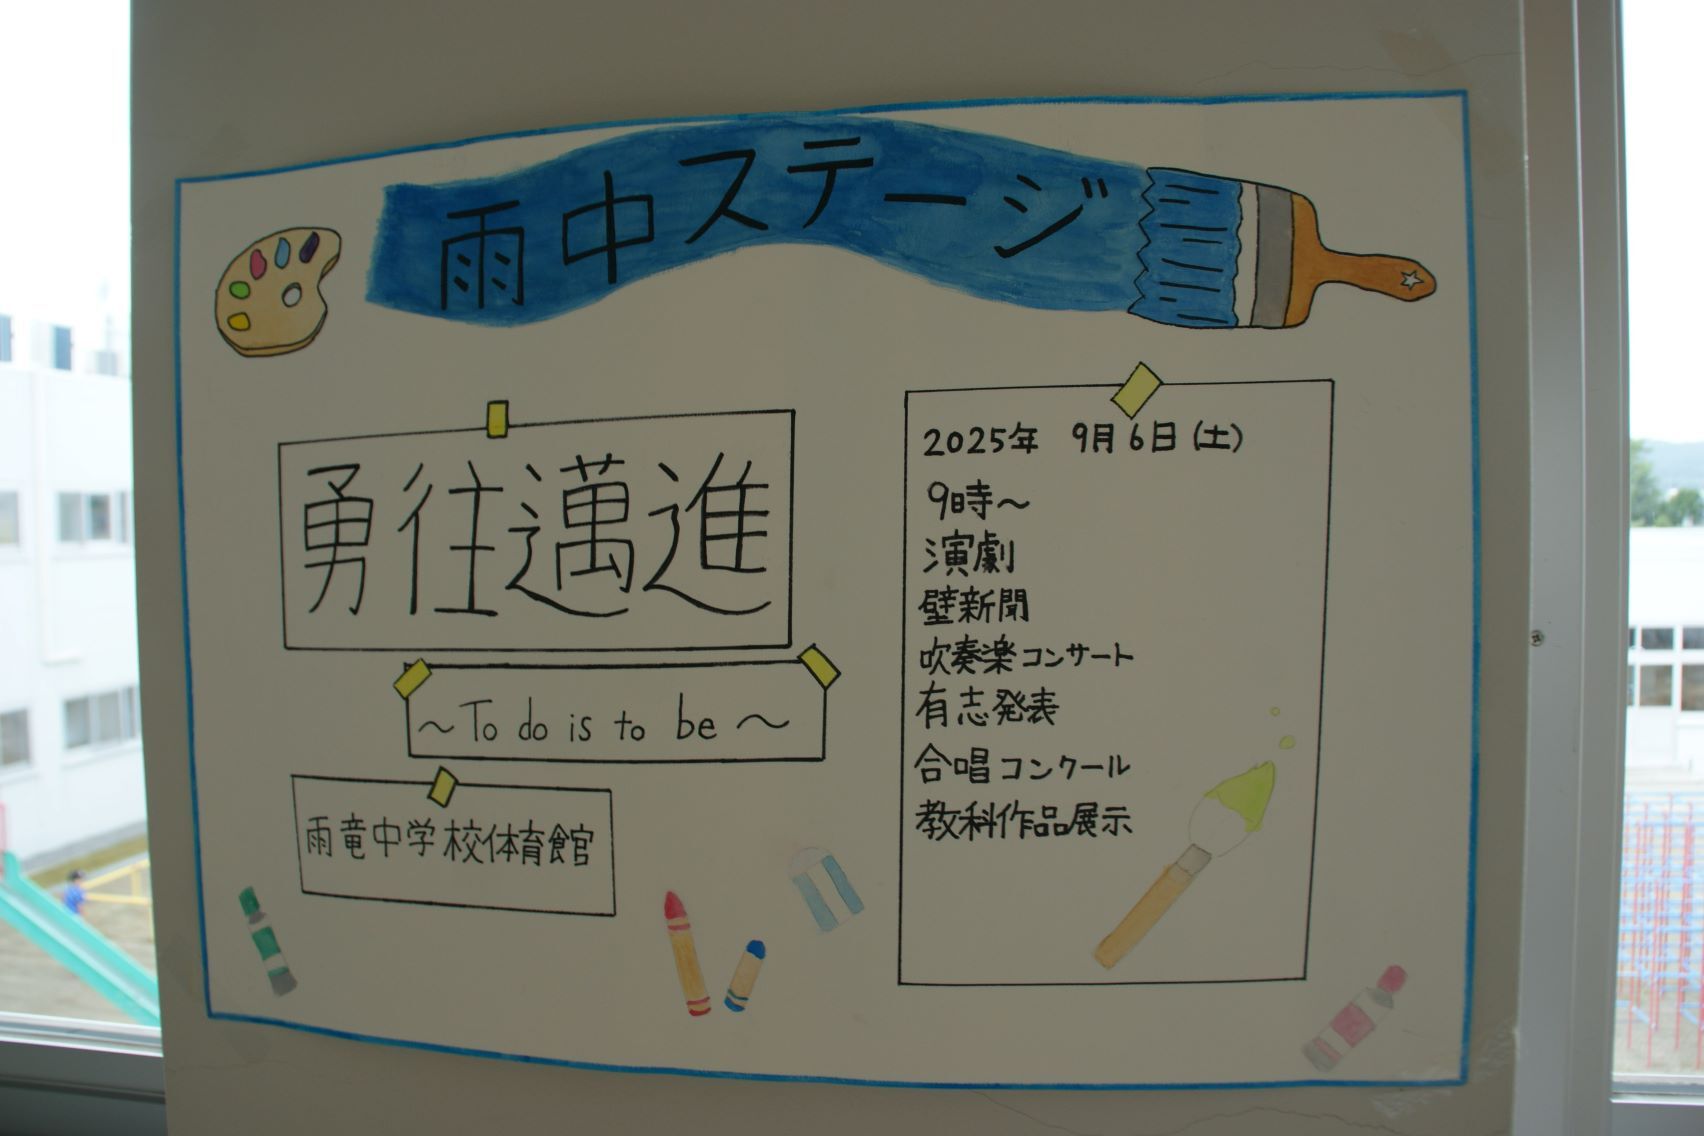 雨中ステージ
勇往邁進
～To do is to be～
雨竜中学校体育館
2025年 9月6日(土)
9時～
演劇
壁新聞
吹奏楽コンサート
有志発表
合唱コンクール
教科作品展示